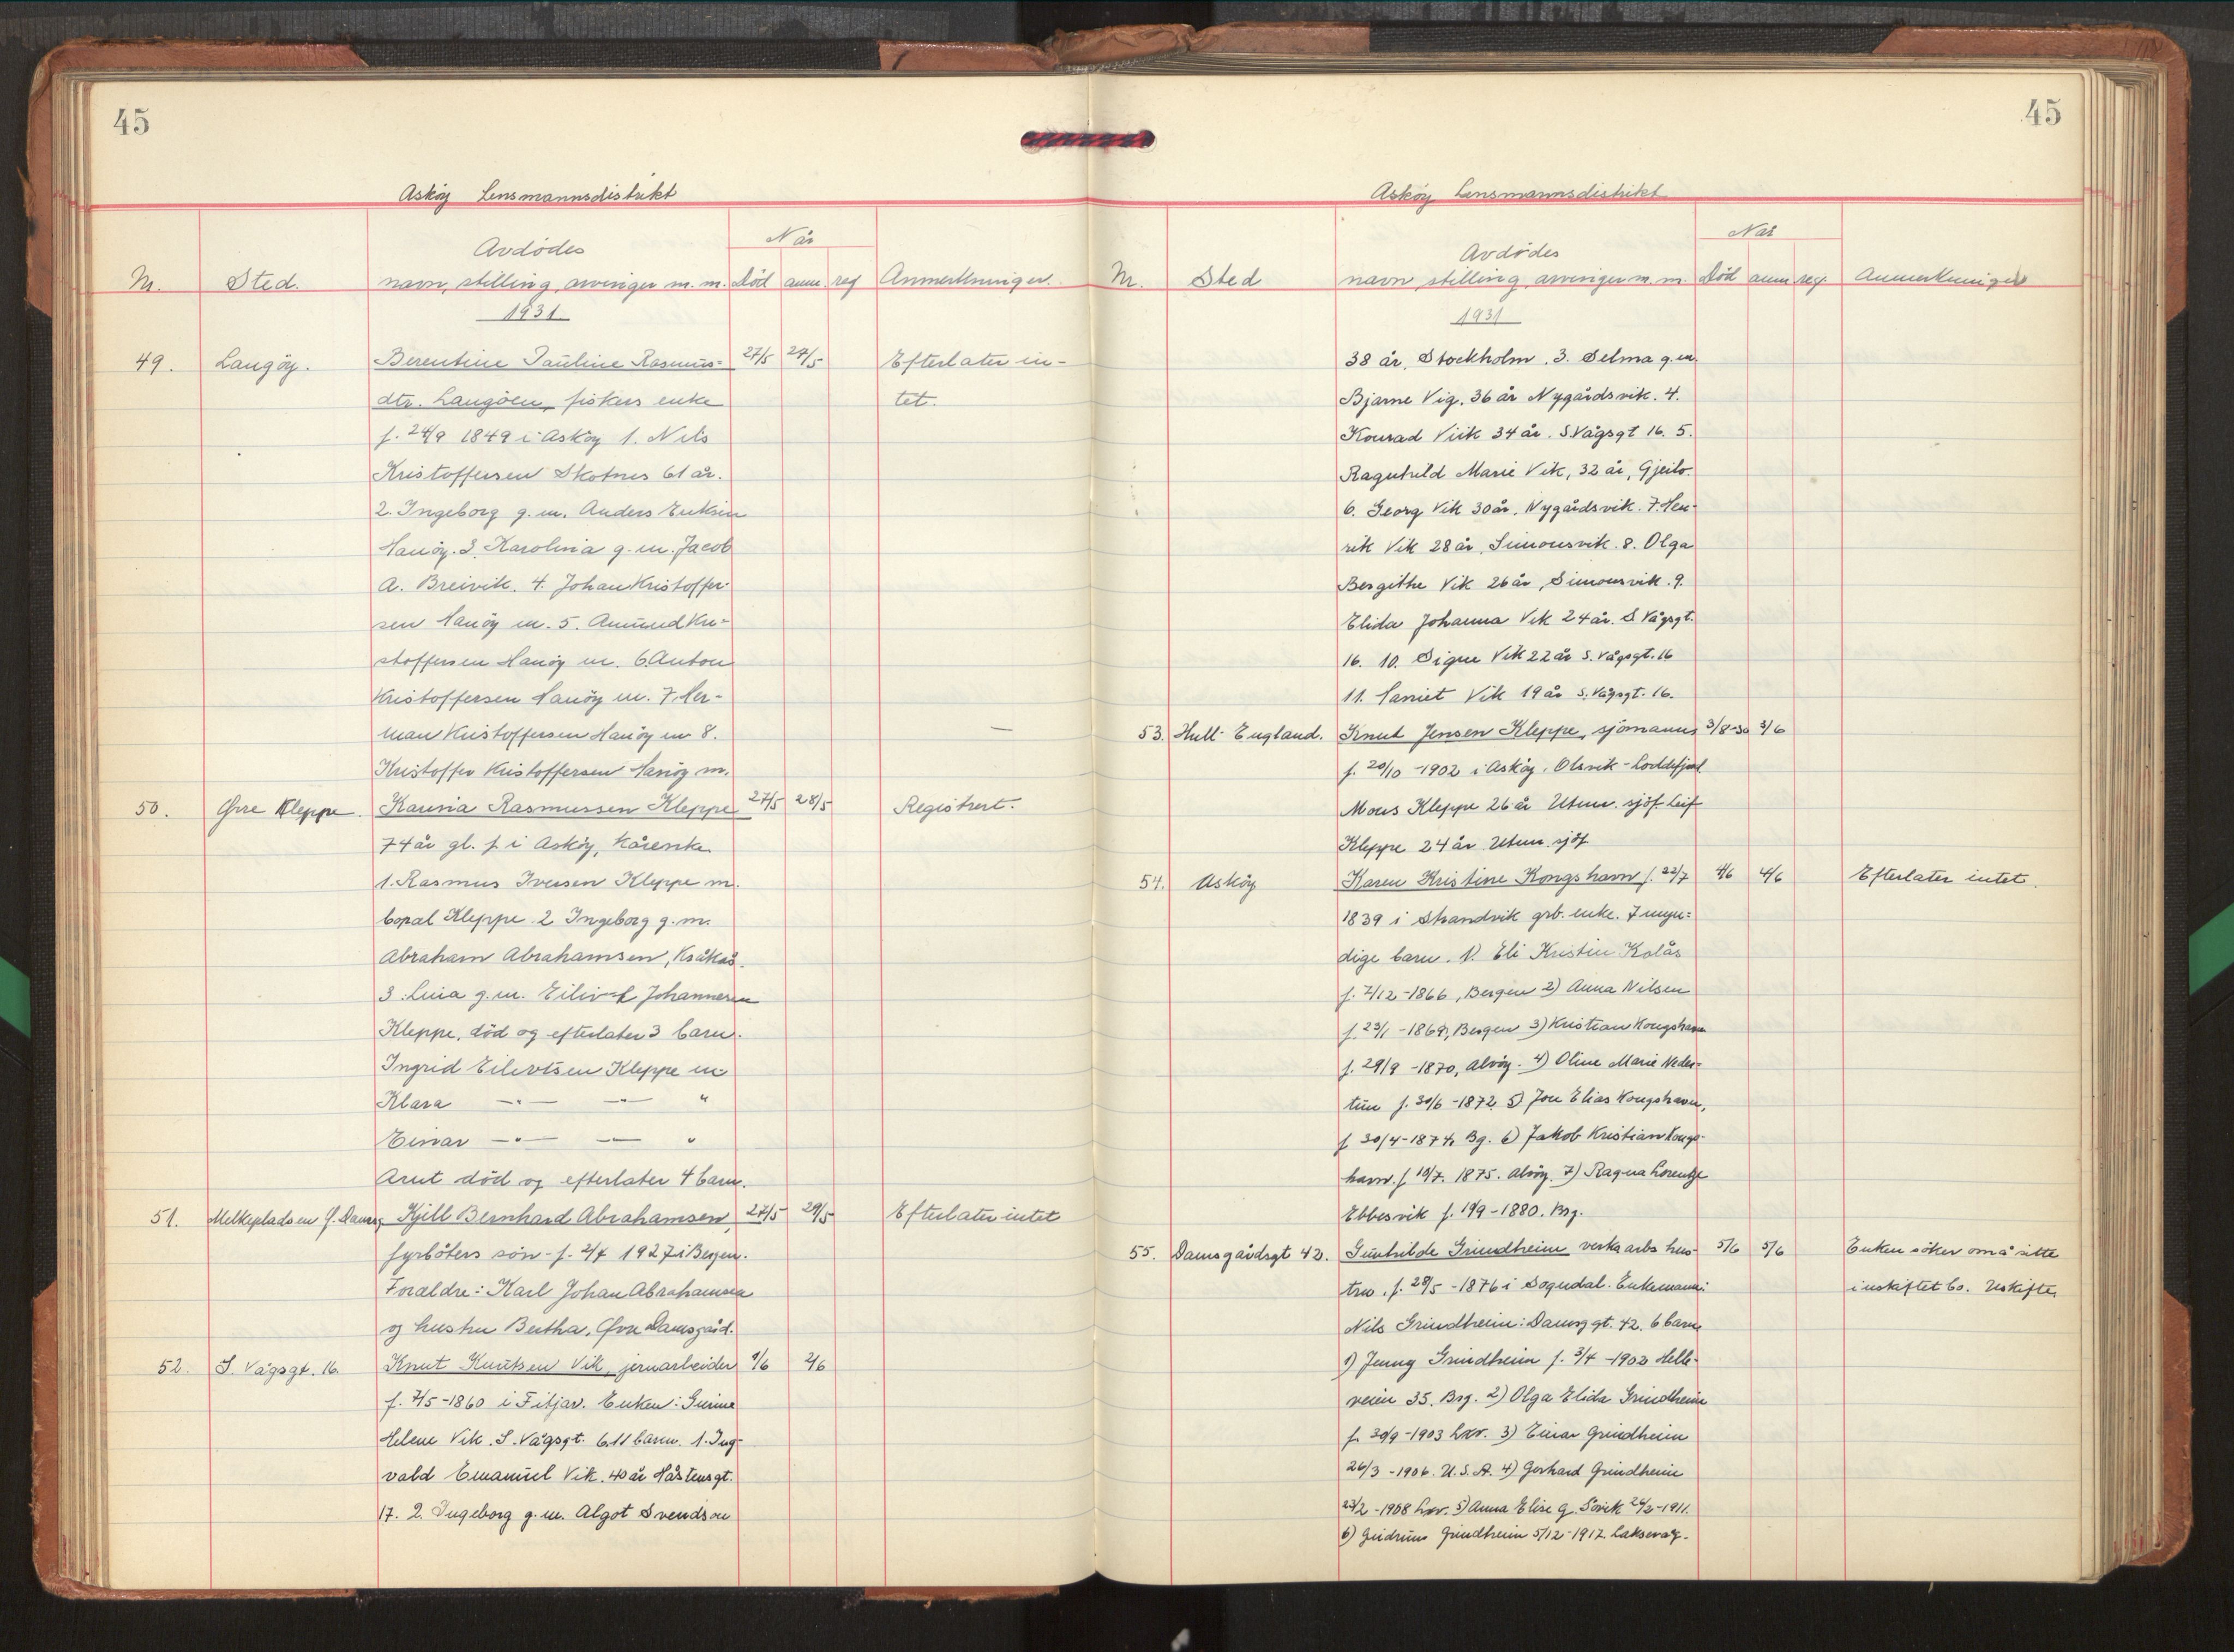 45
Asköy Lensmannsdistrikt
Når
Avdödes
Nr. Sted. navn, stilling, arvinger m. m. död anm. reg Anmerkninger.
1931
49. Langöy. Berentine Pauline Rasmus- 27/5 27/5 Efterlater in-
dtr. Langöen, fiskers enke tet.
f. 24/9 1849 i Asköy 1. Nils
Kristoffersen Skotnes 61 år.
2. Ingeborg g. m. Anders Eriksen
Hanöy. 3. Karolina g. m. Jacob
A. Breivik. 4. Johan Kristoffer-
sen Hanöy m. 5. Amund Kri-
stoffersen Hanöy m. 6. Anton
Kristoffersen Hanöy m. 7. Her-
man Kristoffersen Hanöy m 8.
Kristoffer Kristoffersen Hanöy m.
50. Øvre Kleppe. Rasmussen Kleppe 27/5 28/5 Registrert.
74 år gl. f. i Asköy, Kårenke
1. Rasmus Iversen Kleppe m.
Kleppe 2 Ingeborg g. m.
Abraham Abrahamsen, Kråkås.
3. Lina g. m. Johannesen
Kleppe, död og efterlater 3 barn.
Ingrid Eilertsen Kleppe m
Klara —"— —"— "
Einar —"— —"— "
Arnt död og efterlater 4 barn.
51. Melkepladsen Ø. Damsg. Kjell Bernhard Abrahamsen, 27/5 29/5 Efterlater intet
fyrböters sön - f. 2/7 1927 i Bergen.
Foreldre: Karl Johan Abrahamsen
og hustru Bertha, Øvre Damsgård.
52. S. Vågsgt. 16. Knut Knutsen Vik, jernarbeider 1/6 2/6
f. 7/5-1860 i Fitjar. Enken: Gurine
Helene Vik. S. Vågsgt. 6. 11 barn. 1. Ing-
vald Emanuel Vik. 40 år Håsteinsgt.
17. 2. Ingeborg g. m. Algot Svendsen
45
Asköy Lensmannsdistrikt
Når
Avdödes
Nr. Sted navn, stilling, arvinger m. m. Död anm reg. Anmerkninger
1931
38 år, Stockholm. 3. Selma g. m.
Bjarne Vig. 36 år Nygårdsvik. 4.
Konrad Viik 34 år. S. Vågsgt 16. 5.
Ragnhild Marie Vik, 32 år, Gjeilo.
6. Georg Vik 30 år, Nygårdsvik. 7. Hen-
rik Vik 28 år, Simonsvik. 8. Olga
Bergithe Vik 26 år, Simonsvik. 9.
Elida Johanna Vik 24 år. S. Vågsgt.
16. 10. Signe Vik 22 år S. Vågsgt. 16
11. Harriet Vik 19 år S. Vågsgt. 16.
53. Hull England. Knut Jensen Kleppe, sjömann 3/8-30 3/6
f. 20/10 -1902 i Asköy. Olsvik - Loddefjord
Mons Kleppe 26 år Utenr. sjöf. Leif
Kleppe 24 år Utenr. sjöf
54. Asköy Karen Kristine Kongshavn f. 22/7 4/6 4/6 Efterlater intet.
1839 i Strandvik grb. enke. 7 myn-
dige barn. 1. Eli Kristin Kolås
f. 7/12-1866, Bergen 2) Anna Nilsen
f. 23/1 -1869, Bergen 3) Kristian Kongshavn
f. 29/9 -1870, Alvöy. 4) Oline Marie Neder-
tun f. 30/6 -1872. 5) Jon Elias Kongshavn,
f 30/4-1874, Bg. 6) Jakob Kristian Kongs-
havn. f. 10/7. 1875. Alvöy. 7) Ragna Lorentze
Ebbesvik f. 19/9-1880. Brg.
55. Damsgårdsgt 42. Gunhilde Grindheim verksarbs hus- 5/6 5/6 Enken söker om å sitte
tru. f. 28/5 -1876 i Sogndal. Enkemann: i uskiftet bo. Uskifte.
Nils Grindheim: Damsg gt. 42. 6 barn
1) Jenny Grindheim f. 3/4 -1902 Helle-
veien 35. Brg. 2) Olga Elida Grindheim
f. 30/9 -1903 Lxv. 3) Einar Grindheim
26/3 -1906. U. S. A. 4) Gerhard Grindheim
23/2 -1908 Lxv. 5) Anna Elise G. Sörvik 26/2-1911.
6) Gudrun Grindheim 5/12-1917. Laksevåg.